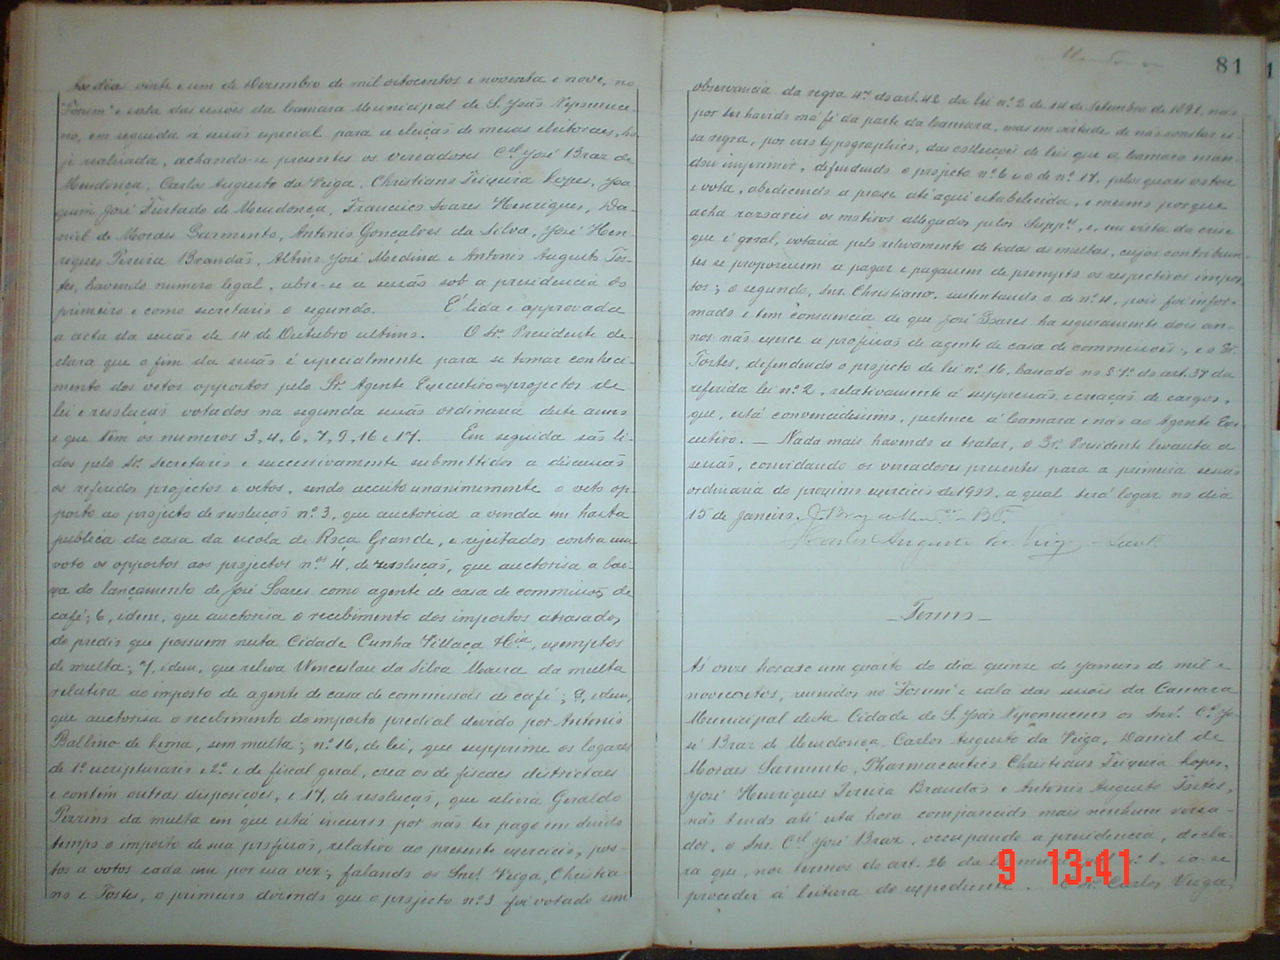 Aos dia vinte e um de Dezembro de mil oitocentos e noventa e nove, no
"Forum" e sala das sessões da Camara Municipal de S. João Nepomuce-
no, em seguida a sessão especial para a eleição de mesas eleitoraes, ho-
je realisada, achando-se presentes os vereadores Cel José Braz de
Mendonça, Carlos Augusto da Veiga, Christiano Teixeira Lopes, Joa-
quim José Furtado de Mendonça, Francisco Soares Henriques, Da-
niel de Moraes Sarmento, Antonio Gonçalves da Silva, José Hen-
riques Pereira Brandão, Albino José Medina e Antonio Augusto For-
tes, havendo numero legal, abre-se a sessão sob a presidencia do
primeiro e como secretario o segundo. É lida e approvada
a acta da sessão de 14 de Outubro ultimo. O Sr. Presidente de-
clara que o fim da sessão é especialmente para se tomar conheci-
mento dos vetos oppostos pelo Sr. Agente Executivo a projectos de
lei e resolução votados na segunda sessão ordinaria deste anno
e que tem os numeros 3, 4, 6, 7, 9, 16 e 17. Em seguida são li-
dos pelo Sr. Secretario e successivamente submettidos a discussão
os referidos projectos e vetos, sendo acceito unanimemente o veto op-
posto ao projecto de resolução nº 3, que auctorisa a venda em hasta
publica da casa da escola de Roça Grande, e rejeitados contra um
voto os oppostos aos projectos nos 4, de resolução, que auctorisa a bai-
xa do lançamento de José Soares como agente de casa de commissões de
café; 6, idem, que auctorisa o recebimento dos impostos atrasados
do predio que possuem nesta Cidade Cunha Villaça & Cia, exemptos
de multa; 7, idem, que releva Wenceslau da Silva Moura da multa
relativa ao imposto de agente de casa de commissões de café; 9, idem,
que auctorisa o recebimento do imposto predial devido por Antonio
Ballino de Lima, sem multa; nº 16, de lei, que supprime os logares
de 1º escripturario e 2º e de fiscal geral, crea os de fiscaes districtaes
e contém outras disposições, e 17, de resolução, que alivia Geraldo
Perrins da multa em que está incurso por não ter pago em devido
tempo o imposto de sua profissão, relativo ao presente exercicio, pos-
tos a votos cada um por sua vez; falando os Snrs. Veiga, Christia-
no e Fortes, o primeiro dizendo que o projecto nº 3 foi votado sem
81
observancia da regra 4ª do art. 42 da lei nº 2 de 14 de Setembro de 1891, não
por ter havido má fé da parte da Camara, mas em virtude de não constar es-
sa regra, por erro typographico, das collecções de leis que a Camara man-
dou imprimir, defendendo o projecto nº 6 e o de nº 17, pelos quaes esteve
e vota, obedecendo a praxe até aqui estabelecida, e mesmo porque
acha razoaveis os motivos allegados pelos Suppes, e, em vista da crise
que é geral, votaria pelo relevamento de todas as multas, cujos contribuin-
tes se proposessem a pagar e pagassem de prompto os respectivos impos-
tos; o segundo, Snr. Christiano, sustentando o de nº 4, pois foi infor-
mado e tem consciencia de que José Soares ha seguramente dois an-
nos não exerce a profissão de agente de casa de commissões; e o Sr.
Fortes, defendendo o projecto de lei nº 16, baseado no § 7º do art. 37 da
referida lei nº 2, relativamente á suppressão e creação de cargos,
que, está convencidissimo, pertence á Camara e não ao Agente Exe-
cutivo. — Nada mais havendo a tratar, o Sr. Presidente levanta a
sessão, convidando os vereadores presentes para a primeira sessão
ordinaria do proximo exercicio de 1900, a qual terá logar no dia
15 de Janeiro.
Carlos Augusto da Veiga - Secret.
- Termo -
Ás onze horas e um quarto do dia quinze de Janeiro de mil e
novecentos, reunidos no "Forum" e sala das sessões da Camara
Municipal desta Cidade de S. João Nepomuceno os Snrs. Cel Jo-
sé Braz de Mendonça, Carlos Augusto da Veiga, Daniel de
Moraes Sarmento, Pharmaceutico Christiano Teixeira Lopes,
José Henriques Pereira Brandão e Antonio Augusto Fortes,
não tendo até esta hora comparecido mais nenhum verea-
dor, o Snr. Cel José Braz, occupando a presidencia, decla-
ra que, nos termos do art. 26 da nº 1, ia-se
proceder á leitura do expediente. O Sr. Carlos Veiga,
9 13:41